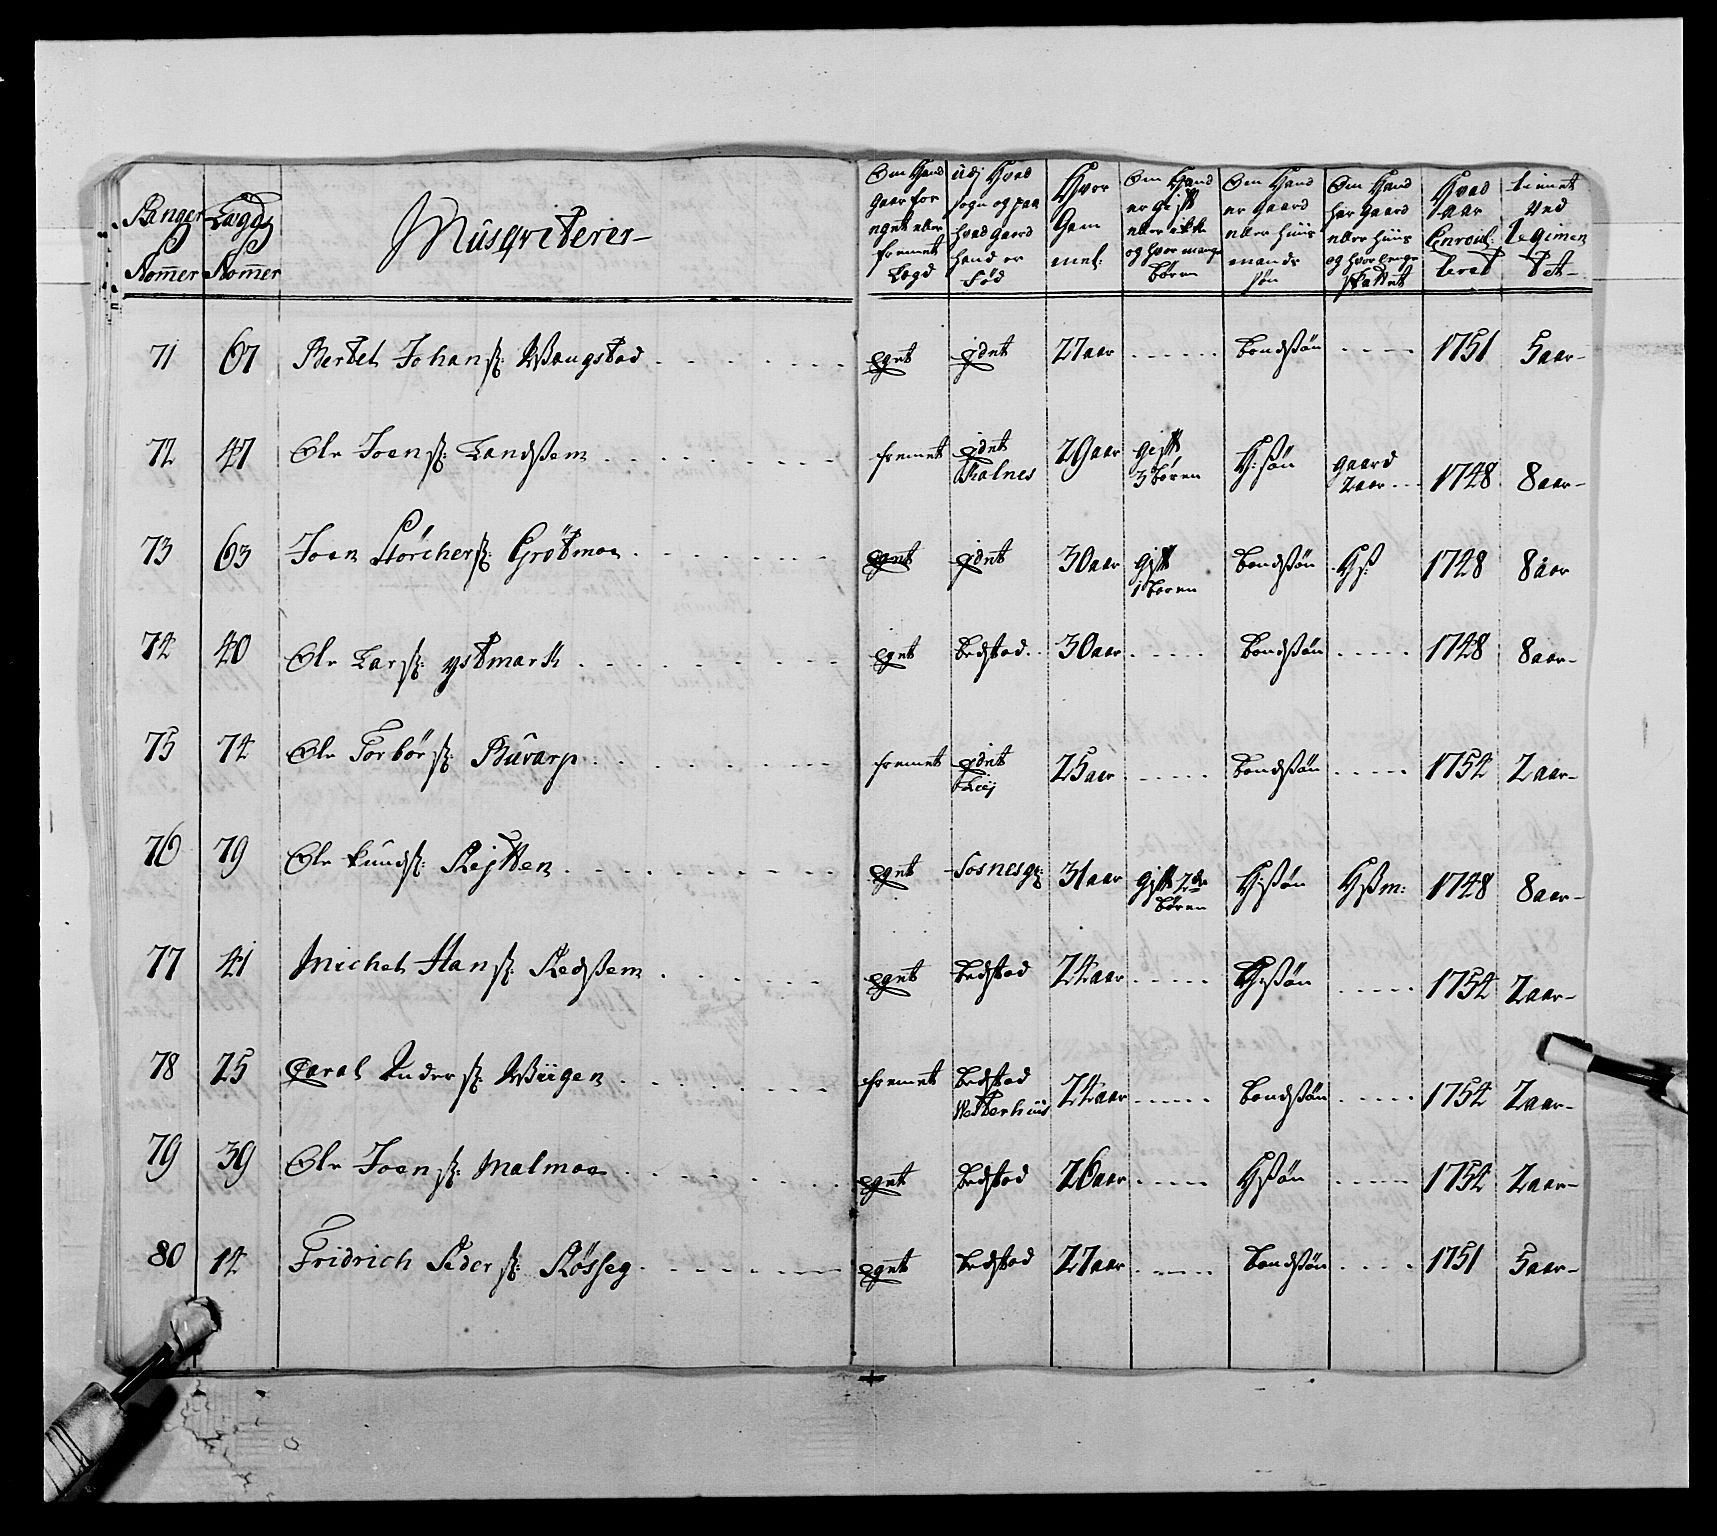 Ranger Nomer | Lægds Nomer | Musqviterer | Om Hand gaar for eget eller fremet Legd | Udj Hvad sogn og paa hvad gaard hand er Fød | Hvor Gam mel: | Om Hand er gift eller ikke og hvor mange Børen | Om Hand er gaard eller huus mands søn | Om Hand har gaard eller huus og hvor lenge | Hvad aar Enroul: leret | tienet Ved Regimen tet
71 | 67 | Bertel Johans: Wangstad | Eget | Ejdet | 27 aar | | bondsøn | | 1751 | 5 aar
72 | 47 | Ole Joens: Landssem | fremet | Ejdet Kalnes | 29 aar | gift 3 børen | H: søn | gaard 2 aar | 1748 | 8 aar
73 | 63 | Joen Störchers: Grötmoe | Eget | Ejdet | 30 aar | gift 1 boren | bondsøn | Hs: | 1748 | 8 aar
74 | 40 | Ole Lars: ystmark | Eget | bedstad | 30 aar | | bondsøn | | 1748 | 8 aar
75 | 74 | Ole Torbörs: Buvarp | fremet | Ejdet | 25 aar | | bondsøn | | 1754 | 2 aar
76 | 79 | Ole Knuds: Rejtten | Eget | Fosnesg: | 31 aar | gift 2de børen | H: søn | Hsm: | 1748 | 8 aar
77 | 41 | Michel Hans: Redssem | Eget | bedstad | 24 aar | | H: søn | | 1754 | 2 aar
78 | 25 | Carol Anders: Wiigen | fremet | bedstad Westerhuus | 24 aar | | bondsøn | | 1754 | 2 aar
79 | 39 | Ole Joens: Malmoe | Eget | bedstad | 26 aar | | H søn | | 1754 | 2 aar
80 | 14 | Fridrich Peders: Røsseg | Eget | bedstad | 27 aar | | bondsøn | | 1751 | 5 aar